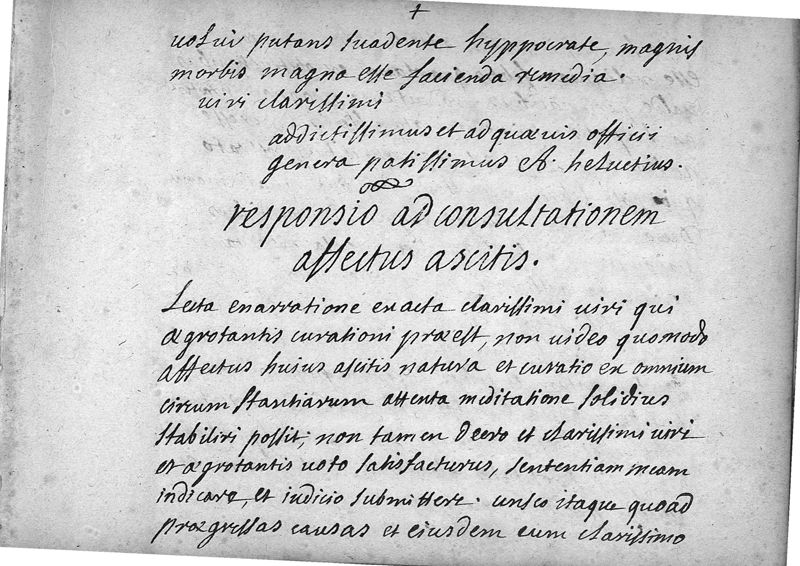 +
volui putans suadente hyppocrate, magnis
morbis magna esse facienda remedia.
viri clarissimi
addictissimus et ad quævis officii
genera patissimus A. heluetius.
responsio ad consultationem
affectus ascitis.
Lecta enarratione exacta clarissimi viri qui
ægrotantis curationi præest, non video quomodo
affectus huius ascitis natura et curatio ex omnium
circum stantiarum attenta meditatione solidius
stabiliri possit; non tamen deero et clarissimi viri
et ægrotantis voto satisfacturus, sententiam meam
indicare, et iudicio submittere. itaque quoad
prægressas causas et eiusdem cum clarissimo